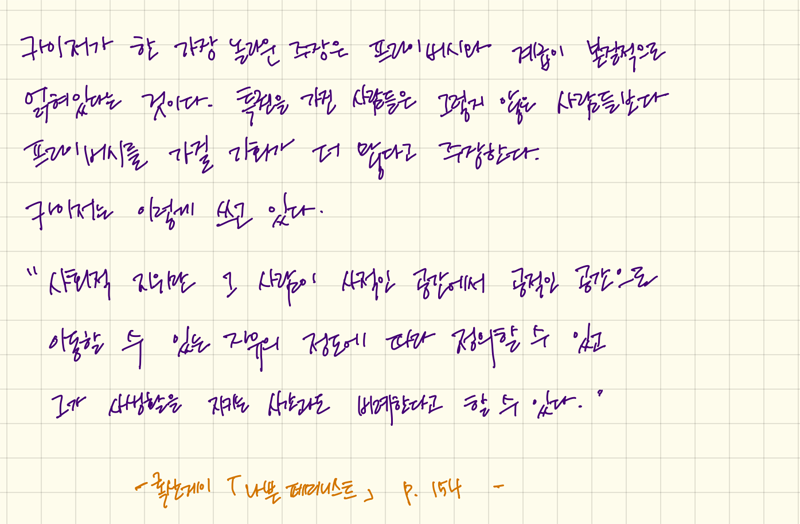 카이저가 한 가장 놀라운 주장은 프라이버시와 계급이 본질적으로
얽혀있다는 것이다. 특권을 가진 사람들은 그렇지 않은 사람들보다
프라이버시를 가질 기회가 더 많다고 주장한다.
카이저는 이렇게 쓰고 있다.
"사회적 지위란 그 사람이 사적인 공간에서 공적인 공간으로
이동할 수 있는 자유의 정도에 따라 정의할 수 있고
그가 사생활을 지키는 사람과도 비례한다고 할 수 있다."
- 록산게이 「나쁜 페미니스트」 p. 154 -